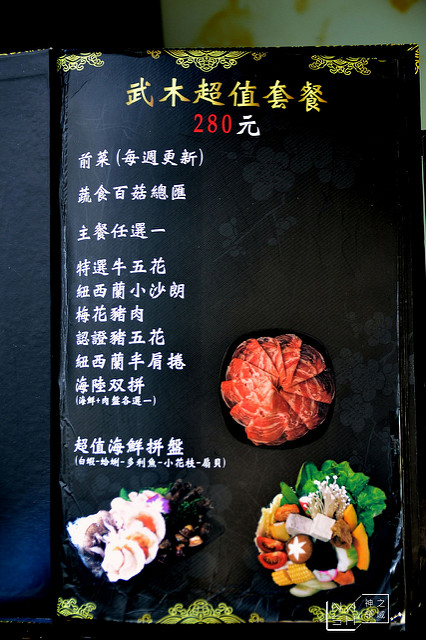 武木超值套餐
280元
前菜(每週更新)
蔬食百菇總匯
主餐任選一
特選牛五花
紐西蘭小沙朗
梅花豬肉
認證豬五花
紐西蘭羊肩捲
海陸双拼
(海鮮+肉盤各選一)
超值海鮮拼盤
(白蝦-蛤蜊-多利魚-小花枝-扇貝)